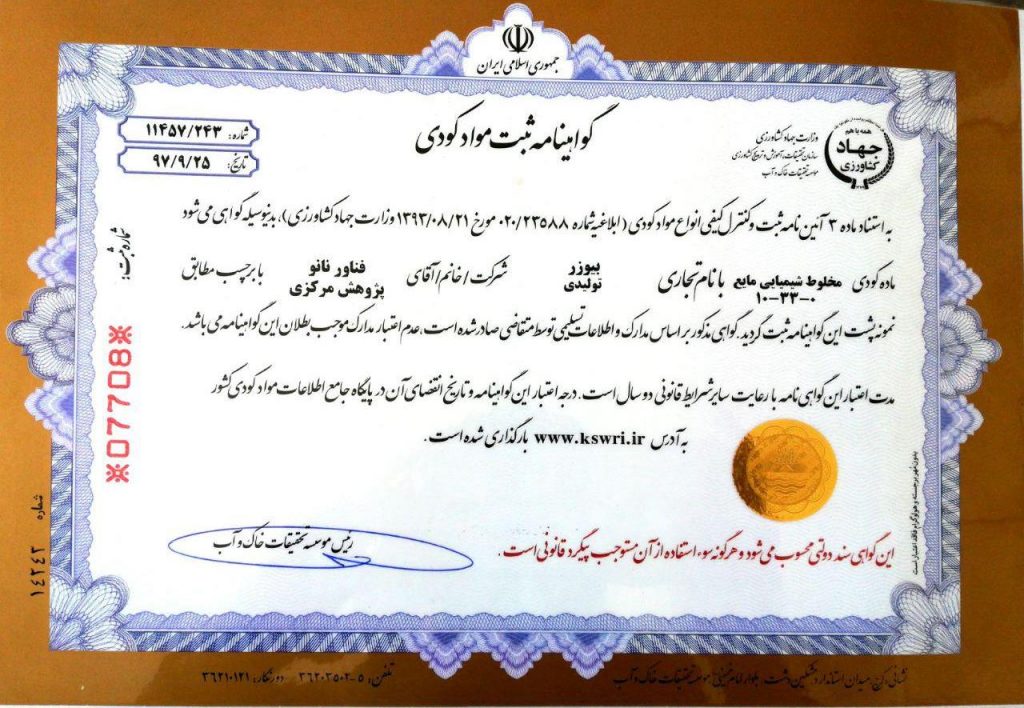 جمهوری اسلامی ایران
همه با هم
جهاد
کشاورزی
وزارت جهاد کشاورزی
سازمان تحقیقات، آموزش و ترویج کشاورزی
موسسه تحقیقات خاک و آب
گواهینامه ثبت مواد کودی
شماره: ۱۱۴۵۷/۲۴۳
تاریخ: ۹۷/۹/۲۵
به استناد ماده ۳ آئین نامه ثبت و کنترل کیفی انواع مواد کودی (ابلاغیه شماره ۰۲۰/۲۳۵۸۸ مورخ ۱۳۹۳/۰۸/۲۱ وزارت جهاد کشاورزی)، بدینوسیله گواهی می شود
ماده کودی مخلوط شیمیایی مایع ۱۰-۳۳-۰ با نام تجاری بیوزر تولیدی شرکت/خانم/آقای فناور نانو پژوهش مرکزی با برچسب مطابق
نمونه پشت این گواهینامه ثبت گردید. گواهی مذکور بر اساس مدارک و اطلاعات تسلیمی توسط متقاضی صادر شده است. عدم اعتبار مدارک موجب بطلان این گواهینامه می باشد.
مدت اعتبار این گواهی نامه با رعایت سایر شرایط قانونی دو سال است. درجه اعتبار این گواهینامه و تاریخ انقضای آن در پایگاه جامع اطلاعات مواد کودی کشور
به آدرس www.kswri.ir بارگذاری شده است.
شماره ثبت:
※07708※
رئیس موسسه تحقیقات خاک و آب
این گواهی سند دولتی محسوب می شود و هرگونه سوء استفاده از آن مستوجب پیگرد قانونی است.
بدون مهر برجسته و هولوگرام فاقد اعتبار است
شماره ۱۴۲۴۳
نشانی: کرج، میدان استاندارد، مشکین دشت، بلوار امام خمینی، موسسه تحقیقات خاک و آب
تلفن: ۵-۳۶۲۰۳۵۰۲ دورنگار: ۳۶۲۱۰۱۲۱